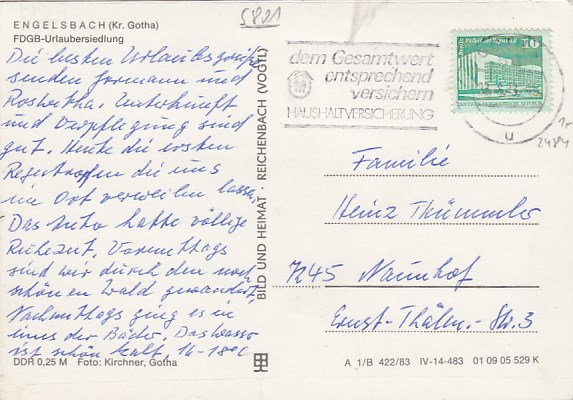 5801
ENGELSBACH (Kr. Gotha)
FDGB-Urlaubersiedlung
Die besten Urlaubsgrüße
senden Hermann und
Roswitha. Unterkunft
und Verpflegung sind
gut. Heute die ersten
Regentropfen die uns
im Ort verweilen lassen.
Das Auto hatte völlige
Ruhezeit. Vormittags
sind wir durch den noch
schönen Wald gewandert,
Nachmittags ging es in
eines der Bäder. Das Wasser
ist schön kalt, 16-18°C
DDR 0,25 M Foto: Kirchner, Gotha
BILD UND HEIMAT REICHENBACH (VOGTL)
dem Gesamtwert
entsprechend
versichern
HAUSHALTVERSICHERUNG
10
u
2484
Familie
Heinz Thümmler
7245 Naunhof
Ernst-Thälm.-Str. 3
A 1/B 422/83 IV-14-483 01 09 05 529 K